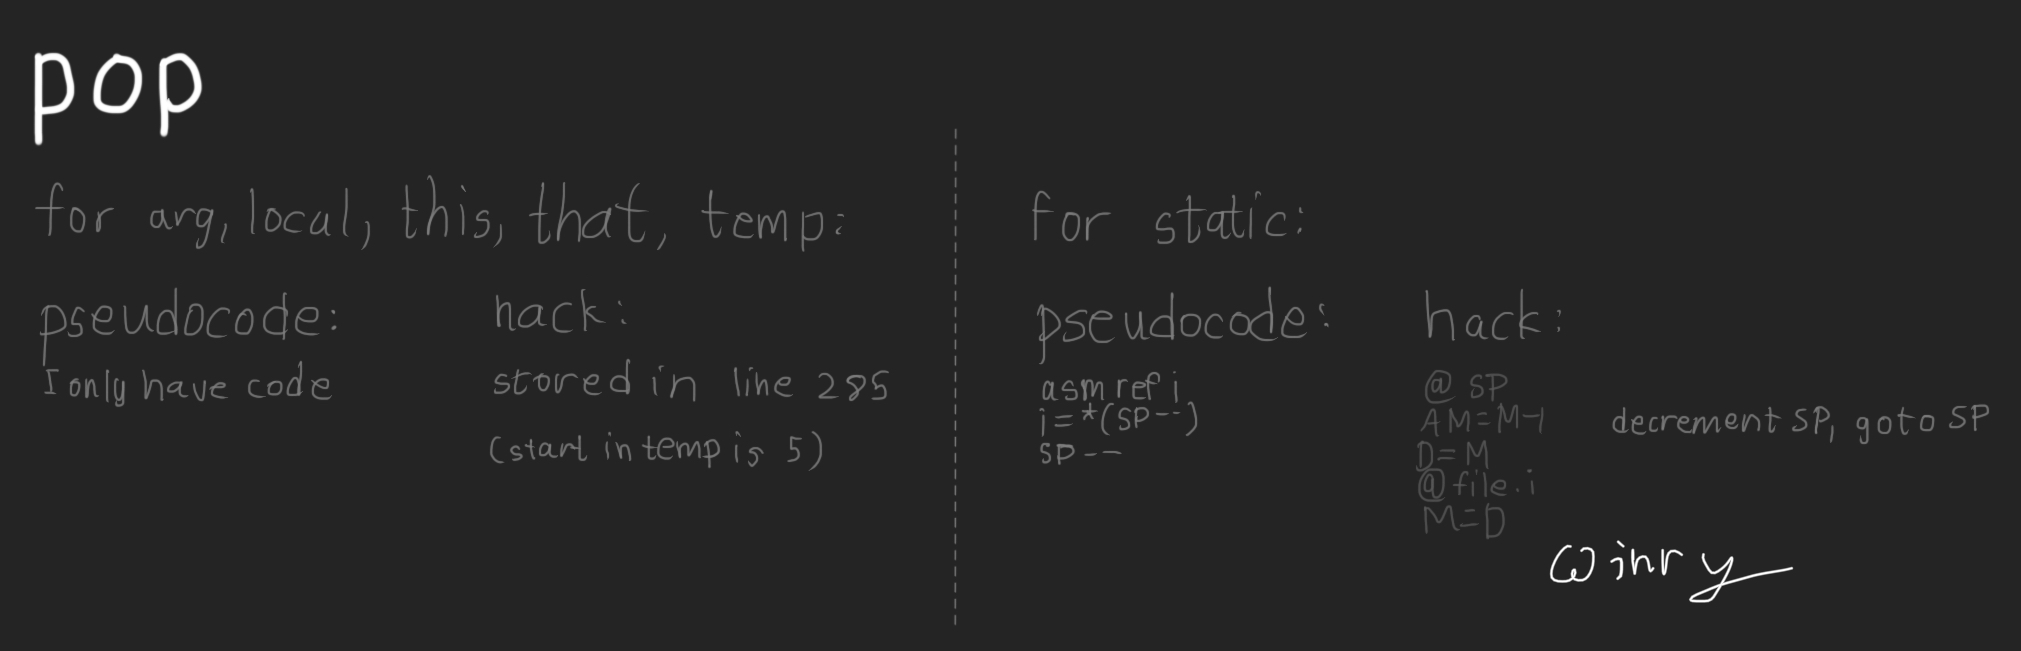 pop
for arg, local, this, that, temp:
pseudocode:
I only have code
hack:
stored in line 285
(start in temp is 5)
for static:
pseudocode:
asm ref i
i=*(SP--)
SP--
hack:
@ SP
AM=M-1 decrement SP, goto SP
D=M
@file.i
M=D
winry